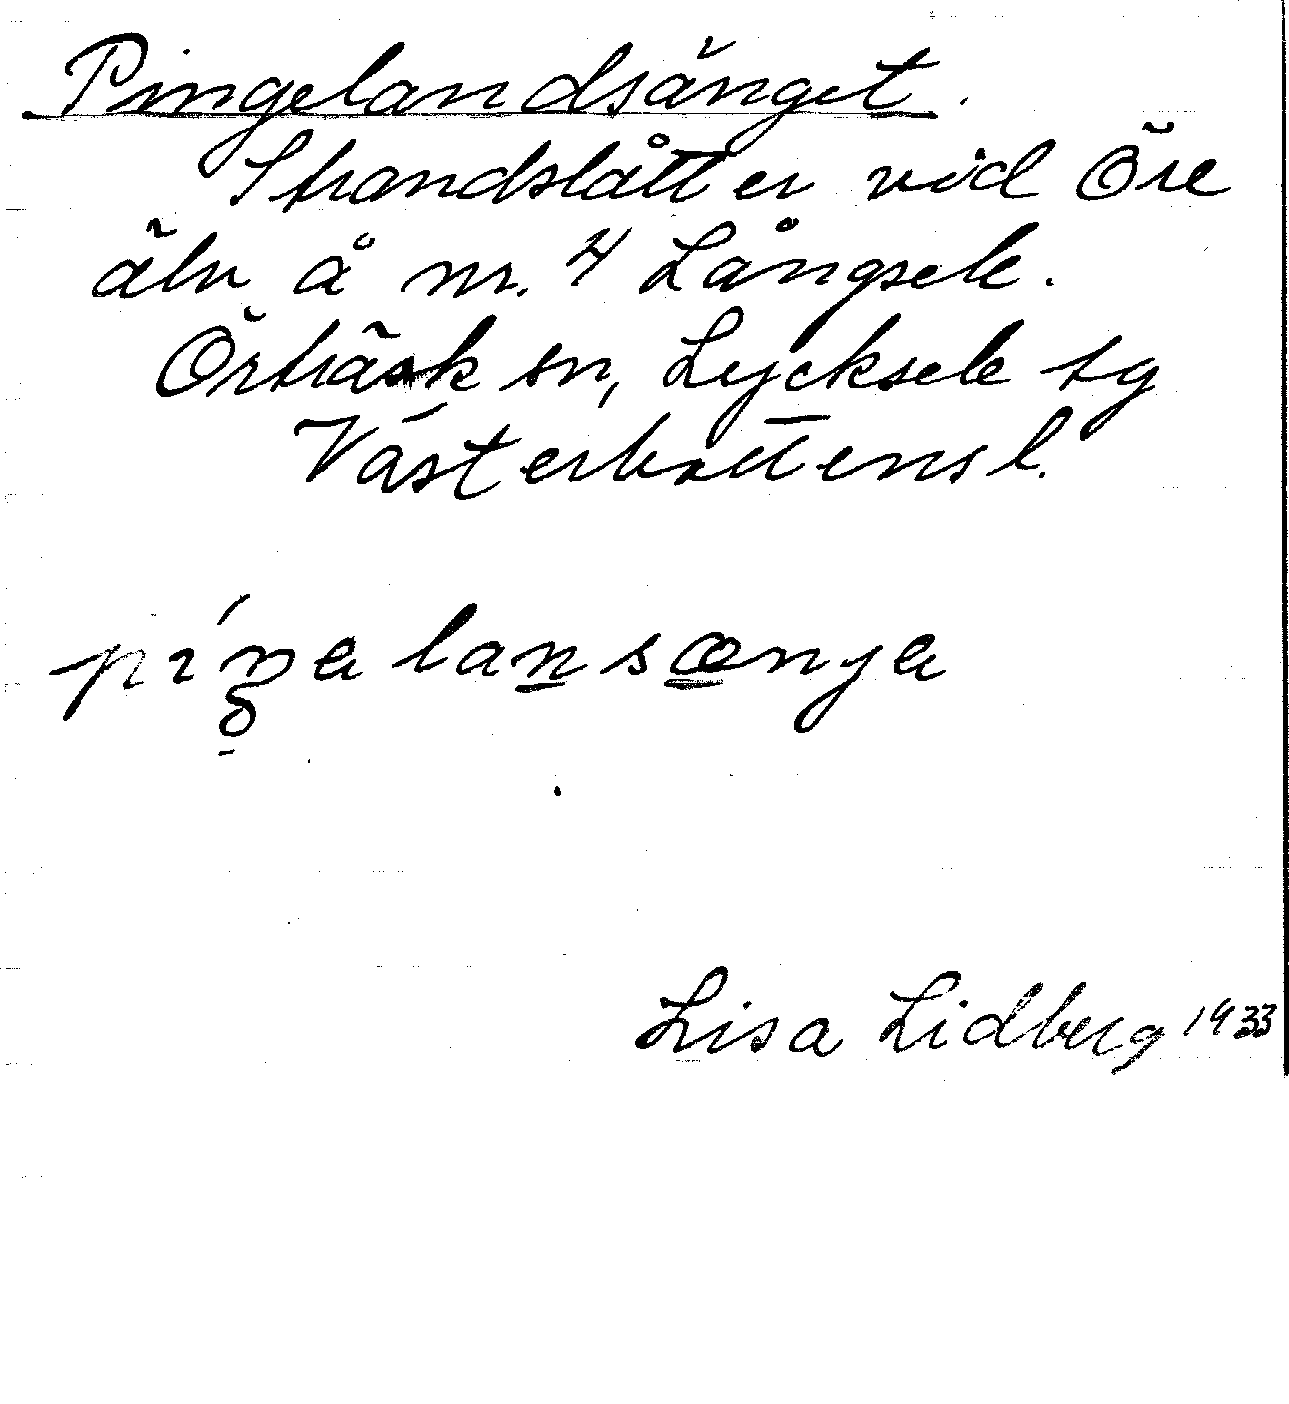 Pingelandsänget.
Strandslåtter vid Öre
älv å nr. 4 Långsele.
Örträsk sn, Lycksele tg
Västerbottens l.
Lisa Lidberg 1933